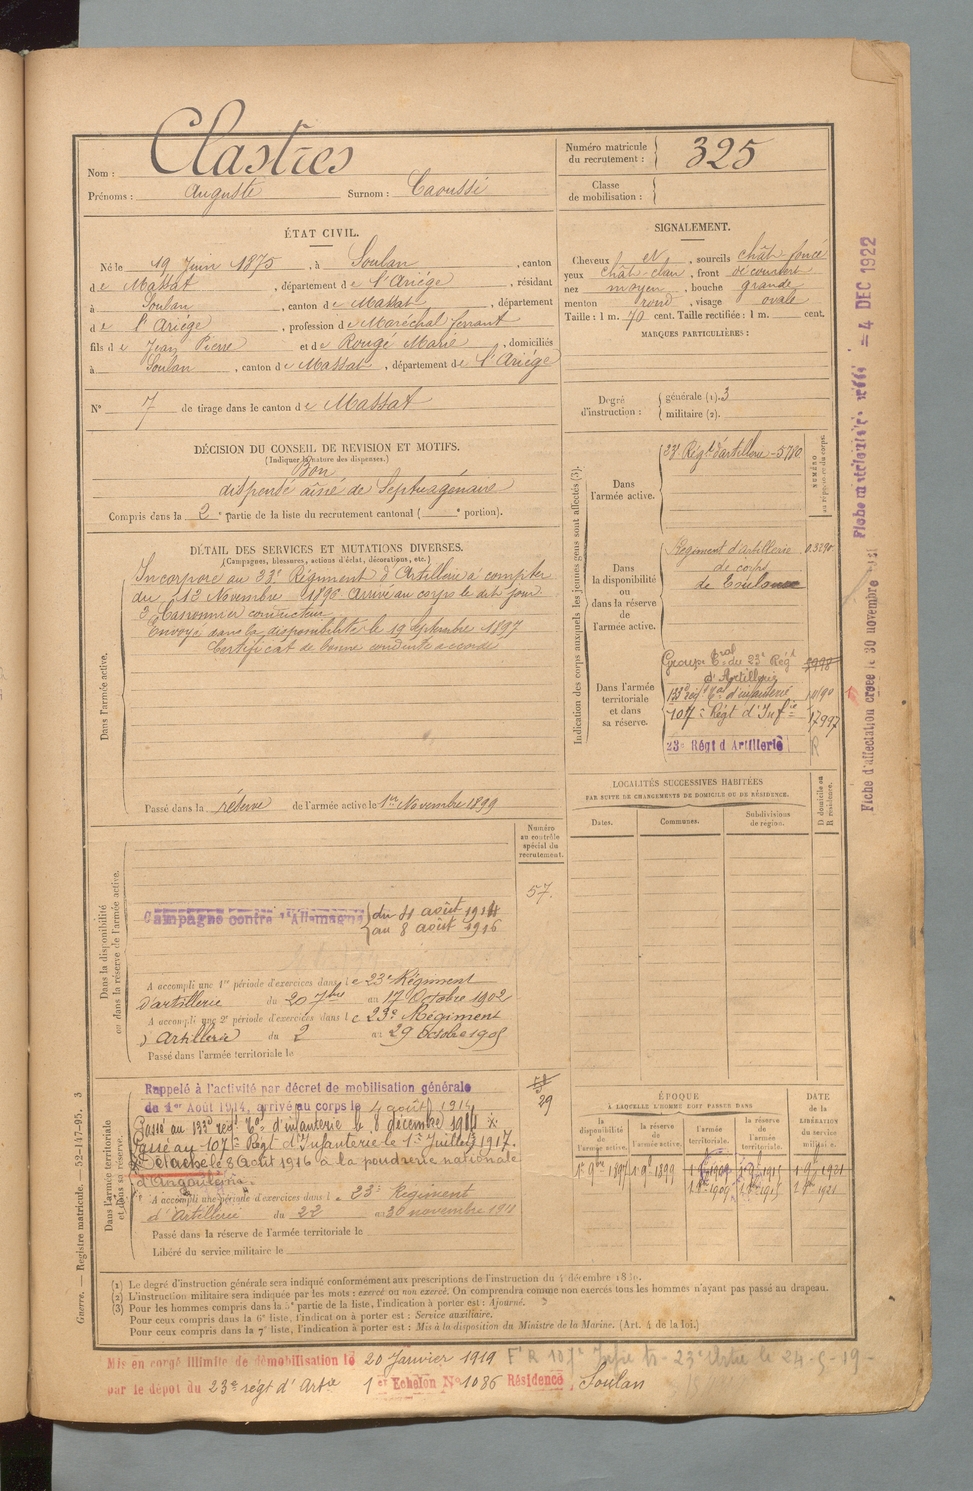 Nom : Clastres
Prénoms : Auguste Surnom : Caoussi
Numéro matricule du recrutement : 325
Classe de mobilisation :
ÉTAT CIVIL.
Né le 19 Juin 1875, à Soulan, canton
de Massat, département de l'Ariège, résidant
à Soulan, canton de Massat, département
de l'Ariège, profession de Maréchal ferrant
fils de Jean Pierre et de Rougé Marie, domiciliés
à Soulan, canton de Massat, département de l'Ariège
N° 7 de tirage dans le canton de Massat
SIGNALEMENT.
Cheveux N, sourcils chât foncé
yeux chât-clair, front découvert
nez moyen, bouche grande
menton rond, visage ovale
Taille : 1 m. 70 cent. Taille rectifiée : 1 m. cent.
MARQUES PARTICULIÈRES :
Degré d'instruction : générale (1). 3
militaire (2).
DÉCISION DU CONSEIL DE REVISION ET MOTIFS.
(Indiquer la nature des dispenses.)
Bon
dispensé aîné de Septuagénaire
Compris dans la 2e partie de la liste du recrutement cantonal ( e portion).
DÉTAIL DES SERVICES ET MUTATIONS DIVERSES.
(Campagnes, blessures, actions d'éclat, décorations, etc.)
Dans l'armée active.
Incorporé au 23e Régiment d'Artillerie à compter
du 13 Novembre 1896 Arrivé au corps le dit jour
2e Canonnier conducteur
Envoyé dans la disponibilité le 19 Septembre 1897
Certificat de bonne conduite accordé
Passé dans la réserve de l'armée active le 1er Novembre 1899
Indication des corps auxquels les jeunes gens sont affectés (3).
NUMÉRO au répertoire du corps.
Dans l'armée active.
23e Régt d'artillerie - 5780
Dans la disponibilité ou dans la réserve de l'armée active.
Régiment d'artillerie 03290
de corps
de Toulouse
Dans l'armée territoriale et dans sa réserve.
Groupe Tral du 23e Régt
d'Artillerie
133e rég Tal d'infanterie
107e Régt d'Infie 17997
23e Régt d'Artillerie R
LOCALITÉS SUCCESSIVES HABITÉES
PAR SUITE DE CHANGEMENTS DE DOMICILE OU DE RÉSIDENCE.
Dates. Communes. Subdivisions de région. D domicile ou R résidence.
Dans la disponibilité ou dans la réserve de l'armée active.
Numéro au contrôle spécial du recrutement.
57
Campagne contre l'Allemagne du 4 août 1914
au 8 août 1916
A accompli une 1re période d'exercices dans le 23e Régiment
d'artillerie du 20 7bre au 17 Octobre 1902
A accompli une 2e période d'exercices dans le 23e Régiment
d'Artillerie du 2 au 29 Octobre 1905
Passé dans l'armée territoriale le
Dans l'armée territoriale et dans sa réserve.
29
Rappelé à l'activité par décret de mobilisation générale
du 1er Août 1914, arrivé au corps le 4 août 1914
Passé au 133e rég Tal d'infanterie le 8 décembre 1914
Passé au 107e Régt d'Infanterie le 1er Juillet 1917.
Détaché le 8 Août 1916 à la poudrerie nationale
d'Angoulême.
A accompli une période d'exercices dans le 23e Régiment
d'Artillerie du 22 au 30 novembre 1911
Passé dans la réserve de l'armée territoriale le
Libéré du service militaire le
ÉPOQUE
À LAQUELLE L'HOMME DOIT PASSER DANS
la disponibilité de l'armée active. la réserve de l'armée active. l'armée territoriale. la réserve de l'armée territoriale. DATE de la LIBÉRATION du service militaire.
1er 9bre 1897 1er 9bre 1899 1er 9bre 1909 1er 9bre 1915 1er 9bre 1921
1er 8bre 1909 1er 8bre 1915 1er 8bre 1921
(1) Le degré d'instruction générale sera indiqué conformément aux prescriptions de l'instruction du 4 décembre 1889.
(2) L'instruction militaire sera indiquée par les mots : exercé ou non exercé. On comprendra comme non exercés tous les hommes n'ayant pas passé au drapeau.
(3) Pour les hommes compris dans la 5e partie de la liste, l'indication à porter est : Ajourné.
Pour ceux compris dans la 6e liste, l'indication à porter est : Service auxiliaire.
Pour ceux compris dans la 7e liste, l'indication à porter est : Mis à la disposition du Ministre de la Marine. (Art. 4 de la loi.)
Mis en congé illimité de démobilisation le 20 Janvier 1919
par le dépôt du 23e régt d'Artie 1er Echelon N° 1086 Résidence Soulan
Guerre. — Registre matricule. — 52-147-95. 3
Fiche d'affectation créée le 30 novembre
4 DEC 1922